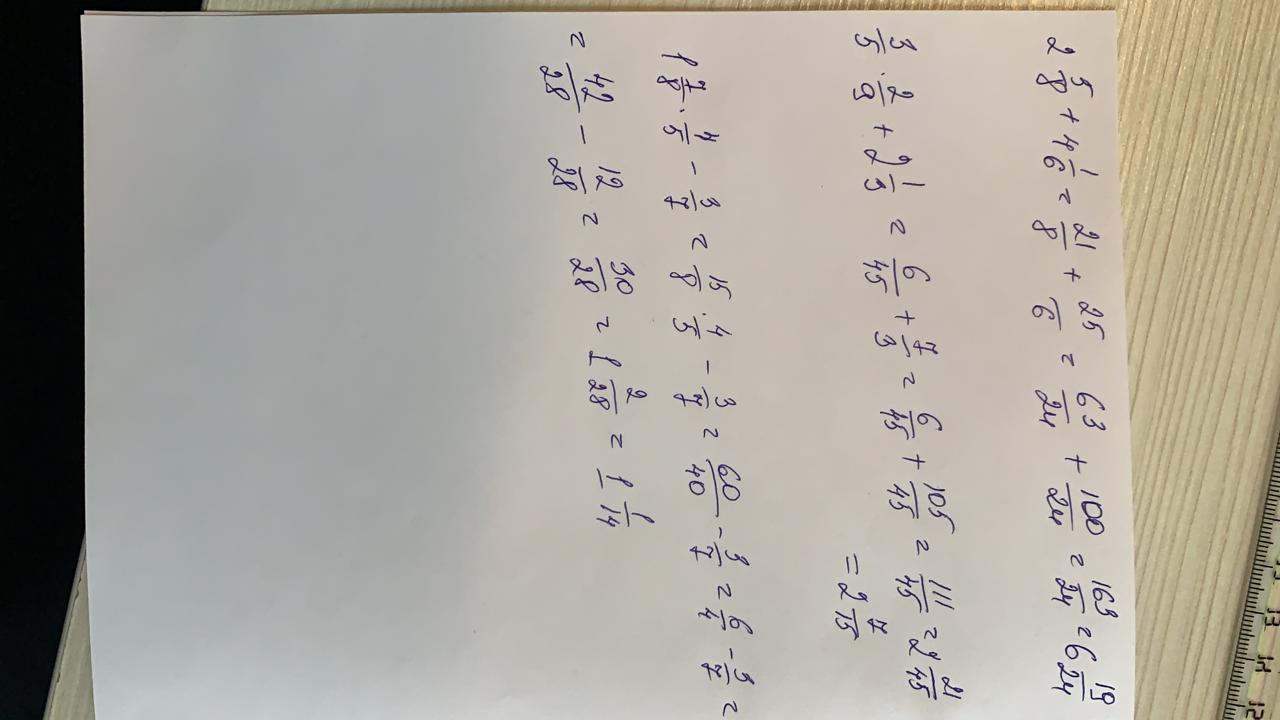 2 5/8 + 4 1/6 = 21/8 + 25/6 = 63/24 + 100/24 = 163/24 = 6 19/24
3/5 · 2/9 + 2 1/3 = 6/45 + 7/3 = 6/45 + 105/45 = 111/45 = 2 21/45
= 2 7/15
1 7/8 · 4/5 - 3/7 = 15/8 · 4/5 - 3/7 = 60/40 - 3/7 = 6/4 - 3/7 =
= 42/28 - 12/28 = 30/28 = 1 2/28 = 1 1/14
13 14 12